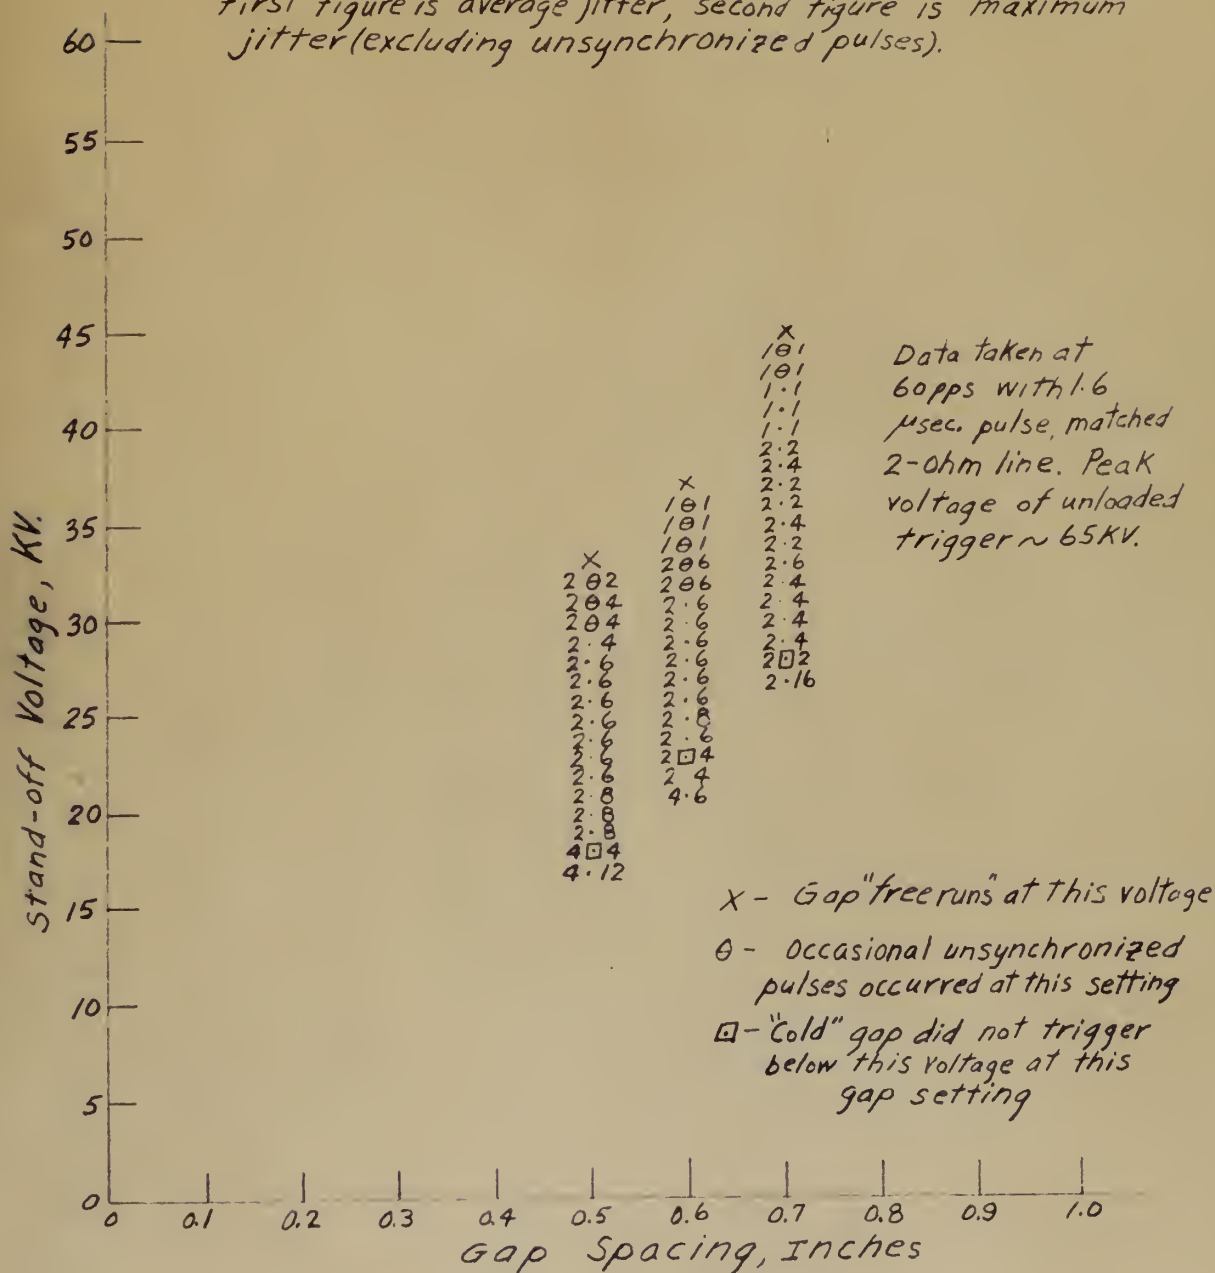 first figure is average jitter, second figure is maximum
jitter (excluding unsynchronized pulses).
60
55
50
45
40
35
30
25
20
15
10
5
0
Stand-off Voltage, KV.
X
2 θ 2
2 θ 4
2 θ 4
2 · 4
2 · 6
2 · 6
2 · 6
2 · 6
2 · 6
2 · 6
2 · 6
2 · 8
2 · 8
2 · 8
4 ⊡ 4
4 · 12
X
1 θ 1
1 θ 1
1 θ 1
2 θ 6
2 θ 6
2 · 6
2 · 6
2 · 6
2 · 6
2 · 6
2 · 6
2 · 8
2 · 6
2 ⊡ 4
2 4
4 · 6
X
1 θ 1
1 θ 1
1 · 1
1 · 1
1 · 1
2 · 2
2 · 4
2 · 2
2 · 2
2 · 4
2 · 2
2 · 6
2 · 4
2 · 4
2 · 4
2 · 4
2 ⊡ 2
2 · 16
Data taken at
60pps with 1.6
μsec. pulse, matched
2-ohm line. Peak
voltage of unloaded
trigger ~ 65KV.
X - Gap "free runs" at this voltage
θ - Occasional unsynchronized
pulses occurred at this setting
⊡ - "Cold" gap did not trigger
below this voltage at this
gap setting
0 0.1 0.2 0.3 0.4 0.5 0.6 0.7 0.8 0.9 1.0
Gap Spacing, Inches